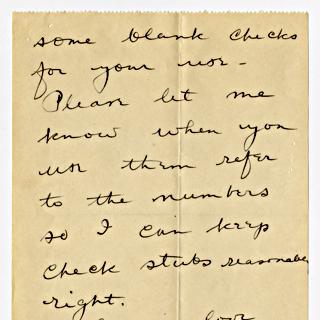 some blank checks
for your use -
Please let me
know when you
use them refer
to the numbers
so I can keep
check stubs reasonably
right.
love